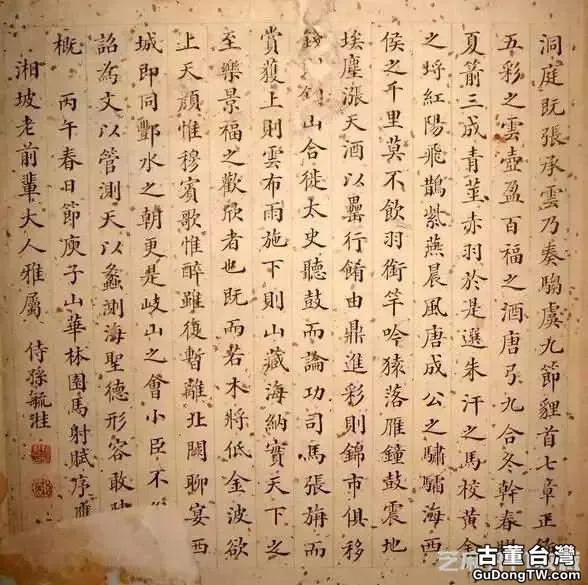 洞庭既張承雲乃奏騶虞九節貍首七章正
五彩之雲壺盈百福之酒唐弓九合冬幹春
夏箭三成青莖赤羽於是選朱汗之馬校黃金
之埒紅陽飛鵲紫燕晨風唐成公之驌驦海西
侯之千里莫不飲羽銜竿吟猿落雁鐘鼓震地
埃塵漲天酒以罍行餚由鼎進彩則錦市俱移
山合徙太史聽鼓而論功司馬張旃而
賞獲上則雲布雨施下則山藏海納實天下之
至樂景福之歡欣者也既而若木將低金波欲
上天顏惟穆賓歌惟醉雖復暫離北闕聊宴西
城即同酆水之朝更是岐山之會小臣不
詔為文以管測天以蠡測海聖德形容敢
概 丙午春日節庾子山華林園馬射賦序應
湘坡老前輩大人雅屬 侍孫毓溎
古董台灣
GuDongTW.com